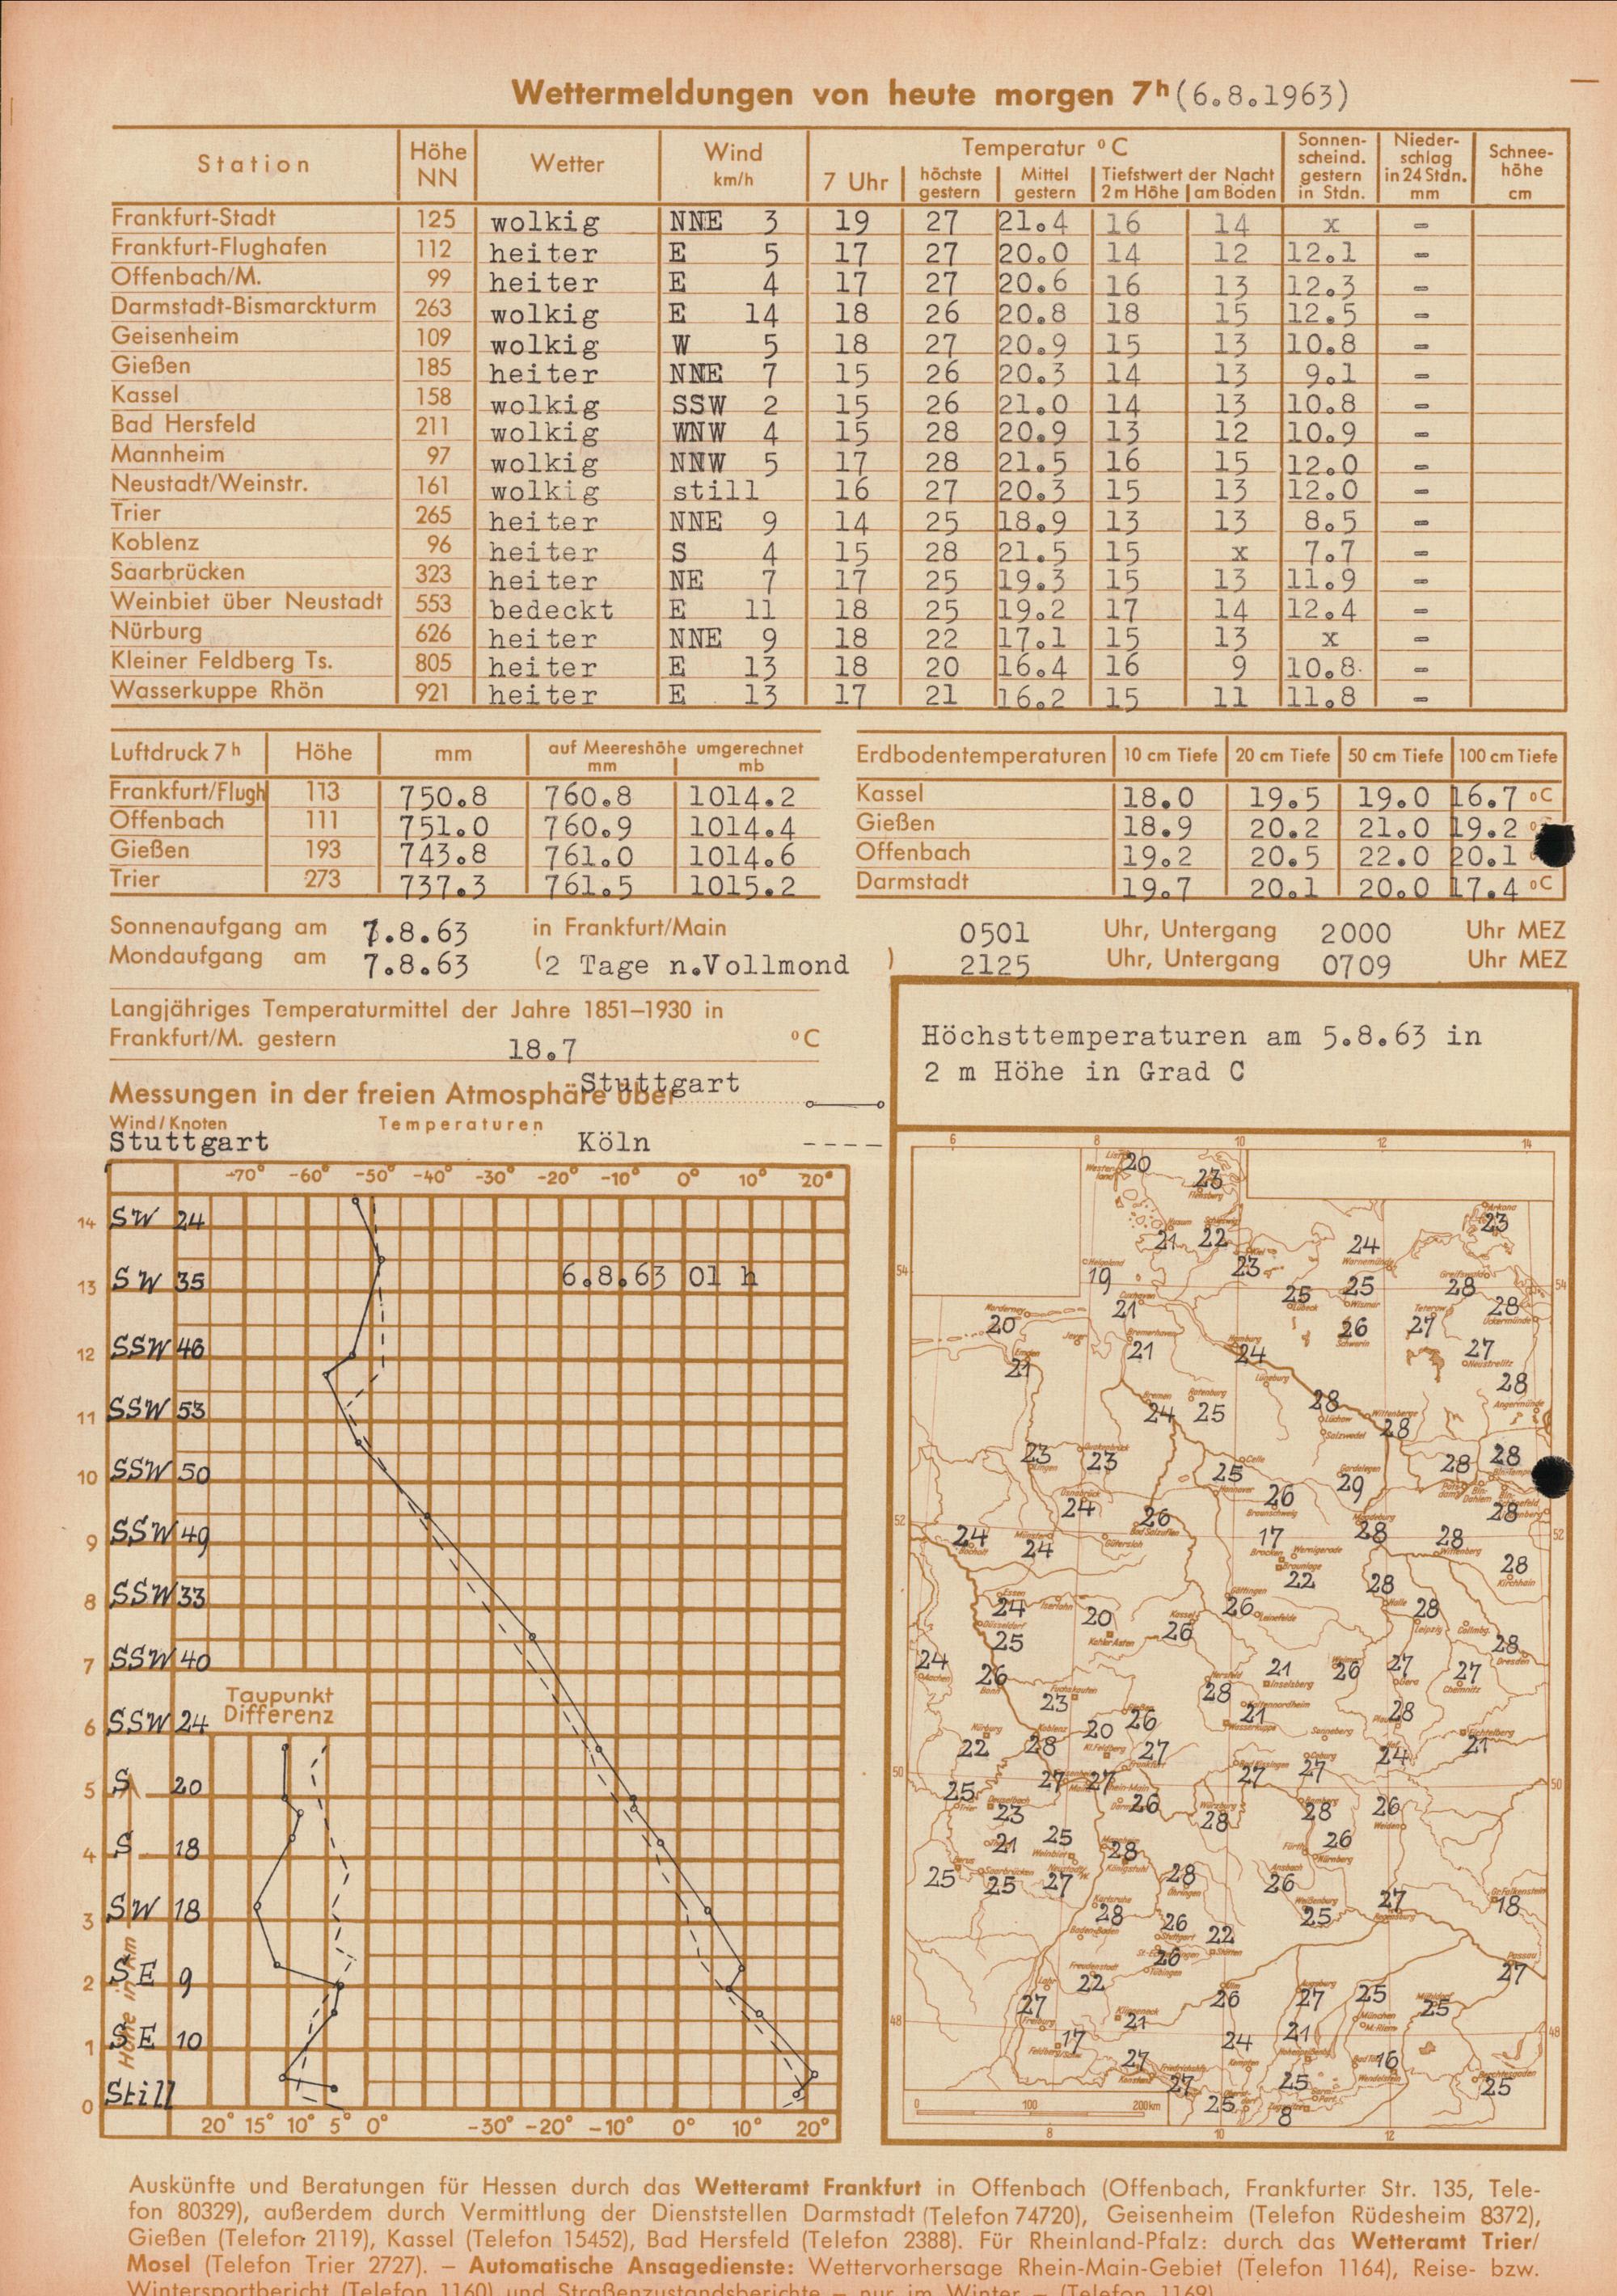 Wettermeldungen von heute morgen 7h (6.8.1963)
Station Höhe NN Wetter Wind km/h Temperatur °C Sonnen-scheind. gestern in Stdn. Nieder-schlag in 24 Stdn. mm Schnee-höhe cm
7 Uhr höchste gestern Mittel gestern Tiefstwert der Nacht 2 m Höhe am Boden
Frankfurt-Stadt 125 wolkig NNE 3 19 27 21.4 16 14 x -
Frankfurt-Flughafen 112 heiter E 5 17 27 20.0 14 12 12.1 -
Offenbach/M. 99 heiter E 4 17 27 20.6 16 13 12.3 -
Darmstadt-Bismarckturm 263 wolkig E 14 18 26 20.8 18 15 12.5 -
Geisenheim 109 wolkig W 5 18 27 20.9 15 13 10.8 -
Gießen 185 heiter NNE 7 15 26 20.3 14 13 9.1 -
Kassel 158 wolkig SSW 2 15 26 21.0 14 13 10.8 -
Bad Hersfeld 211 wolkig WNW 4 15 28 20.9 13 12 10.9 -
Mannheim 97 wolkig NNW 5 17 28 21.5 16 15 12.0 -
Neustadt/Weinstr. 161 wolkig still 16 27 20.3 15 13 12.0 -
Trier 265 heiter NNE 9 14 25 18.9 13 13 8.5 -
Koblenz 96 heiter S 4 15 28 21.5 15 x 7.7 -
Saarbrücken 323 heiter NE 7 17 25 19.3 15 13 11.9 -
Weinbiet über Neustadt 553 bedeckt E 11 18 25 19.2 17 14 12.4 -
Nürburg 626 heiter NNE 9 18 22 17.1 15 13 x -
Kleiner Feldberg Ts. 805 heiter E 13 18 20 16.4 16 9 10.8 -
Wasserkuppe Rhön 921 heiter E 13 17 21 16.2 15 11 11.8 -
Luftdruck 7h Höhe mm auf Meereshöhe umgerechnet mm mb
Frankfurt/Flugh 113 750.8 760.8 1014.2
Offenbach 111 751.0 760.9 1014.4
Gießen 193 743.8 761.0 1014.6
Trier 273 737.3 761.5 1015.2
Erdbodentemperaturen 10 cm Tiefe 20 cm Tiefe 50 cm Tiefe 100 cm Tiefe
Kassel 18.0 19.5 19.0 16.7 °C
Gießen 18.9 20.2 21.0 19.2
Offenbach 19.2 20.5 22.0 20.1
Darmstadt 19.7 20.1 20.0 17.4 °C
Sonnenaufgang am 7.8.63 in Frankfurt/Main 0501 Uhr, Untergang 2000 Uhr MEZ
Mondaufgang am 7.8.63 (2 Tage n.Vollmond ) 2125 Uhr, Untergang 0709 Uhr MEZ
Langjähriges Temperaturmittel der Jahre 1851–1930 in
Frankfurt/M. gestern 18.7 °C
Messungen in der freien Atmosphäre über Stuttgart
Wind/Knoten Temperaturen
Stuttgart Köln ----
-70° -60° -50° -40° -30° -20° -10° 0° 10° 20°
14 SW 24
13 SW 35 6.8.63 01 h
12 SSW 46
11 SSW 53
10 SSW 50
9 SSW 49
8 SSW 33
7 SSW 40
Taupunkt
Differenz
6 SSW 24
5 S 20
4 S 18
3 SW 18
2 SE 9
1 SE 10
0 Still
Höhe in km
20° 15° 10° 5° 0° -30° -20° -10° 0° 10° 20°
Höchsttemperaturen am 5.8.63 in
2 m Höhe in Grad C
6 8 10 12 14
20 23
Flensburg
21 22 23 24 23
Helgoland 19
54 54
Norderney 20 21 25 25 28 28
Lübeck Wismar
Emden 21 21 Hamburg 24 26 27 27
Neustrelitz 28
Lüneburg
Bremen 24 Rotenburg 25 28 28
Salzwedel
23 23 Celle 25 29 28 28
Hannover
24 26 26 28 28
Braunschweig
52 52
24 24 17 28 28
Bocholt Brocken Wernigerode Wittenberg
Gütersloh 22 28 28
Essen 24 20 26 28
Göttingen Leinefelde Leipzig
25 Kassel 26 28
Kahler Asten Dresden
24 26 21 26 27 27
Aachen Bonn Inselsberg Gera Chemnitz
23 28 21 28
Nürburg 22 28 20 26 27 Sonneberg 24 21
Koblenz Kl.Feldberg Wasserkuppe Fichtelberg
50 50
25 27 27 26 27 27
Trier 23 28 28 26
Würzburg Weiden
21 25 28 26
Weinbiet Mannheim Fürth Nürnberg
25 25 27 28 26
Saarbrücken Königstuhl Öhringen Ansbach
28 25 27 18
Karlsruhe Weißenburg
26 22 Passau 27
Baden-Baden Stuttgart
26 Tübingen
Freudenstadt 22
27 21 26 27 25 25
Freiburg Klippeneck München Mühldorf
48 48
17 27 27 24 21 16
Konstanz Kempten Wendelstein
25 25 8 25
0 100 200km
8 10 12
Auskünfte und Beratungen für Hessen durch das Wetteramt Frankfurt in Offenbach (Offenbach, Frankfurter Str. 135, Tele-
fon 80329), außerdem durch Vermittlung der Dienststellen Darmstadt (Telefon 74720), Geisenheim (Telefon Rüdesheim 8372),
Gießen (Telefon 2119), Kassel (Telefon 15452), Bad Hersfeld (Telefon 2388). Für Rheinland-Pfalz: durch das Wetteramt Trier/
Mosel (Telefon Trier 2727). – Automatische Ansagedienste: Wettervorhersage Rhein-Main-Gebiet (Telefon 1164), Reise- bzw.
Wintersportbericht (Telefon 1160) und Straßenzustandsberichte – nur im Winter – (Telefon 1169)